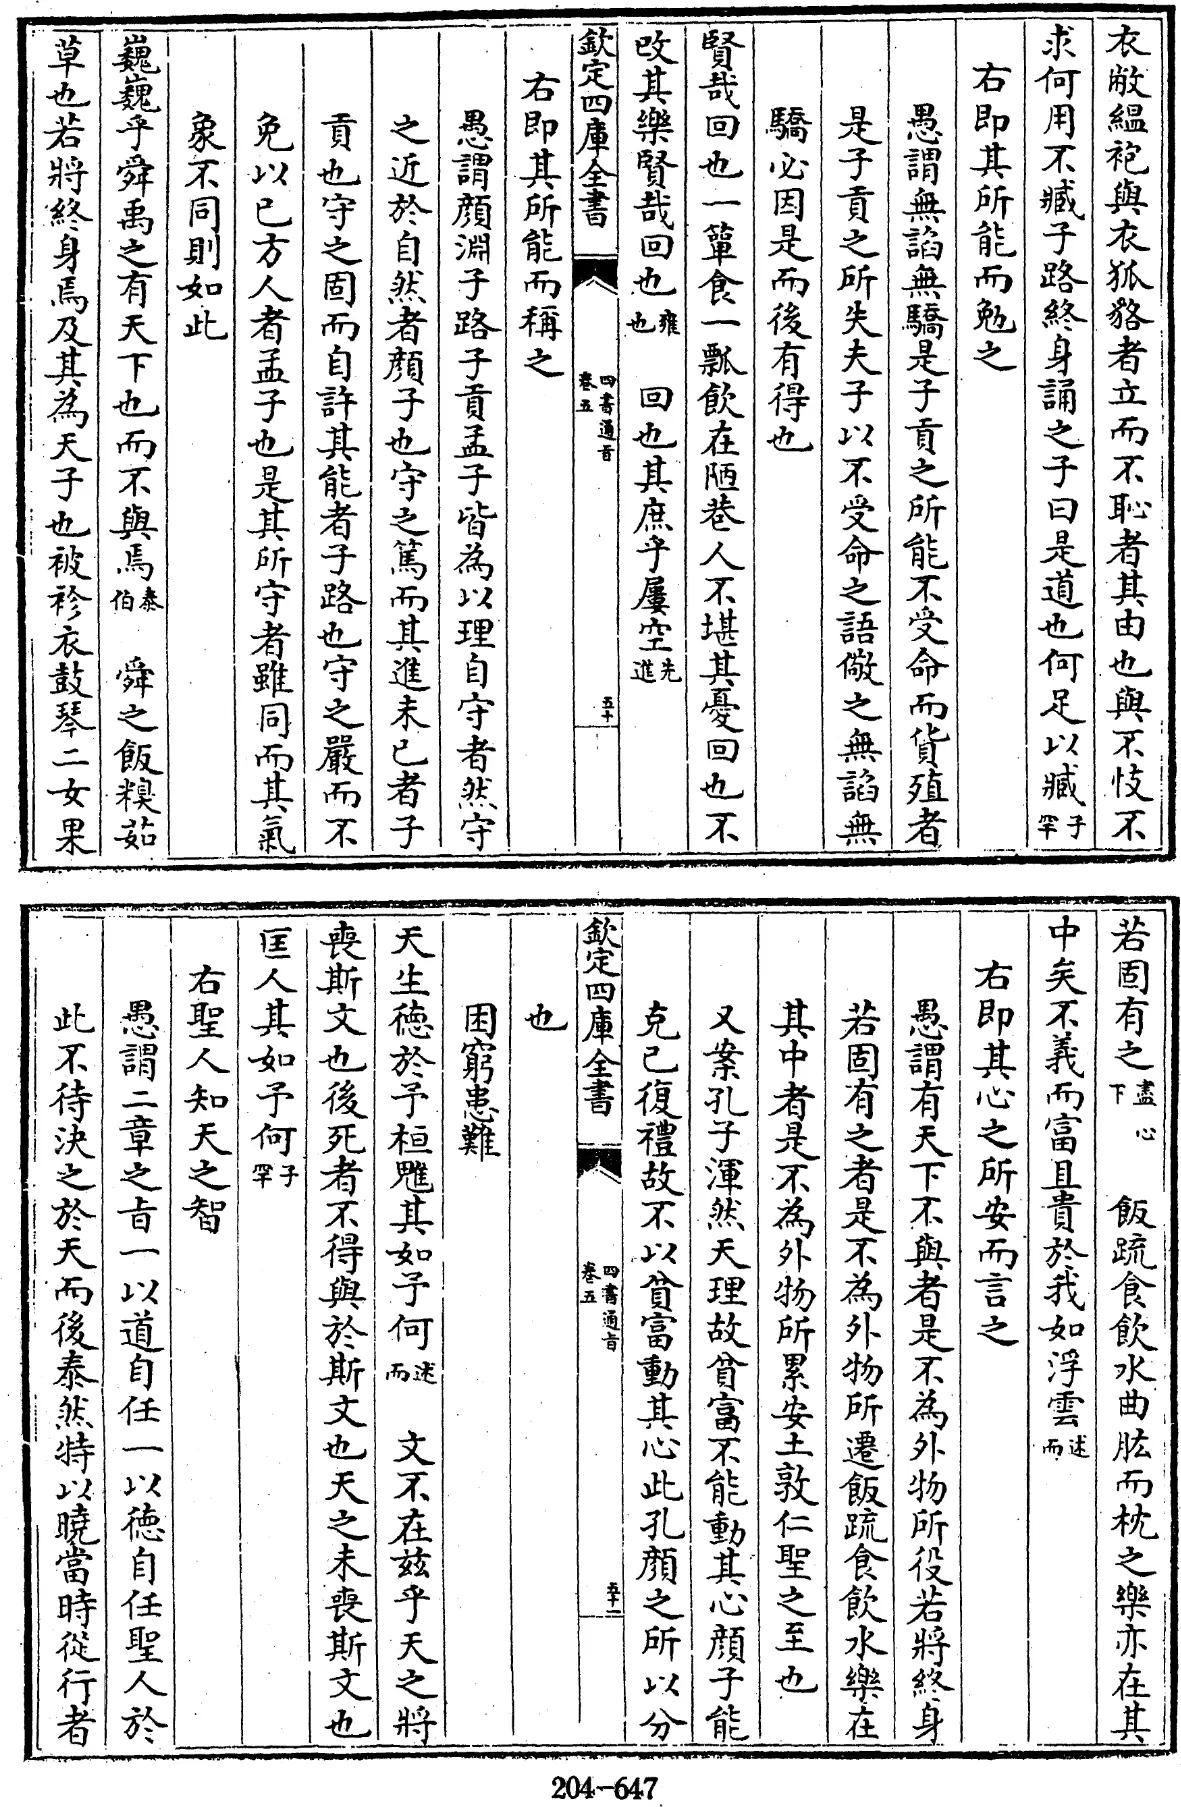 衣敝緼袍與衣狐貉者立而不恥者其由也與不忮不
求何用不臧子路終身誦之子曰是道也何足以臧子罕
右即其所能而勉之
愚謂無諂無驕是子貢之所能不受命而貨殖者
是子貢之所失夫子以不受命之語儆之無諂無
驕必因是而後有得也
賢哉回也一簞食一瓢飲在陋巷人不堪其憂回也不
改其樂賢哉回也雍也 回也其庶乎屢空先進
欽定四庫全書 四書通旨卷五 五十
右即其所能而稱之
愚謂顔淵子路子貢孟子皆為以理自守者然守
之近於自然者顔子也守之篤而其進未已者子
貢也守之固而自許其能者子路也守之嚴而不
免以己方人者孟子也是其所守者雖同而其氣
象不同則如此
巍巍乎舜禹之有天下也而不與焉泰伯 舜之飯糗茹
草也若將終身焉及其為天子也被袗衣鼓琴二女果
若固有之盡心下 飯疏食飲水曲肱而枕之樂亦在其
中矣不義而富且貴於我如浮雲述而
右即其心之所安而言之
愚謂有天下不與者是不為外物所役若將終身
若固有之者是不為外物所遷飯疏食飲水樂在
其中者是不為外物所累安土敦仁聖之至也
又案孔子渾然天理故貧富不能動其心顔子能
克己復禮故不以貧富動其心此孔顔之所以分
欽定四庫全書 四書通旨卷五 五十一
也
困窮患難
天生德於予桓魋其如予何述而 文不在兹乎天之將
喪斯文也後死者不得與於斯文也天之未喪斯文也
匡人其如予何子罕
右聖人知天之智
愚謂二章之旨一以道自任一以德自任聖人於
此不待決之於天而後泰然特以曉當時從行者
204-647